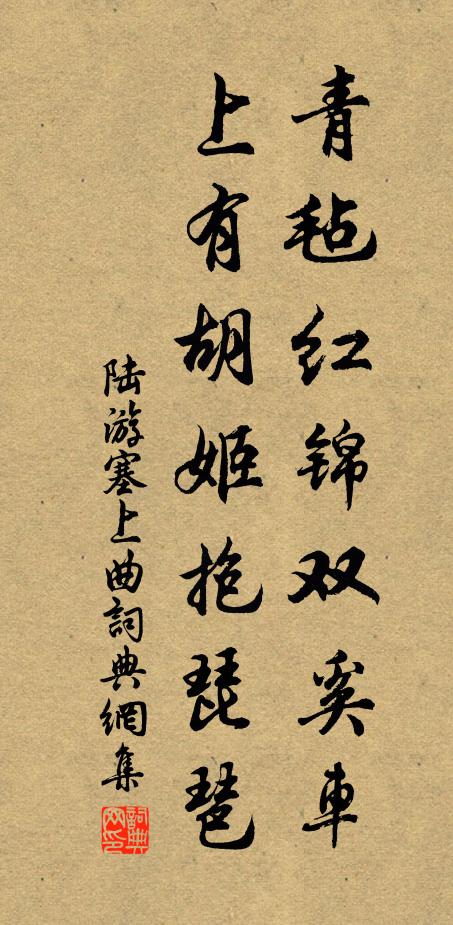 青毡红锦双奚車
上有胡姬抱琵琶
陆游塞上曲詞典網集
詞典网印